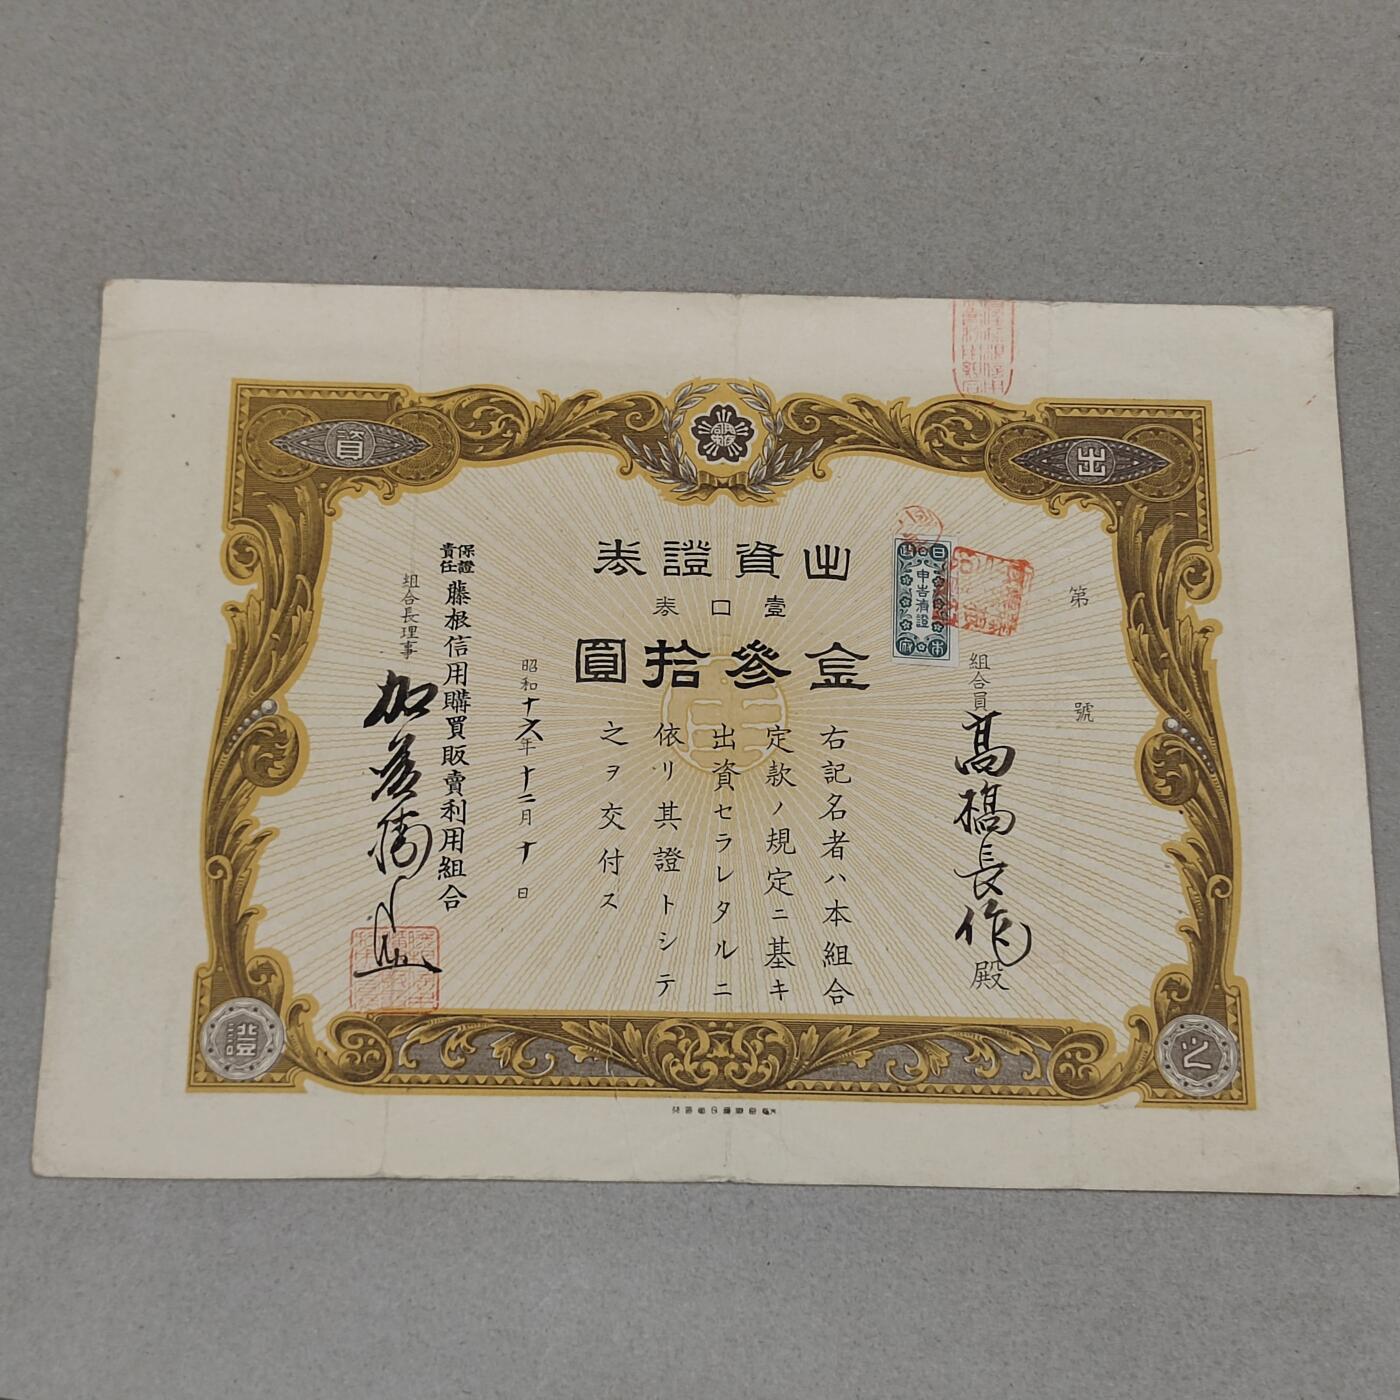 出資證券
壹口券
金參拾圓
第　號
組合員 髙橋長作殿
右記名者ハ本組合
定款ノ規定ニ基キ
出資セラレタルニ
依リ其證トシテ
之ヲ交付ス
昭和十六年十二月十日
保證責任 藤根信用購買販賣利用組合
組合長理事
日本
申告濟證
出
資
之
證